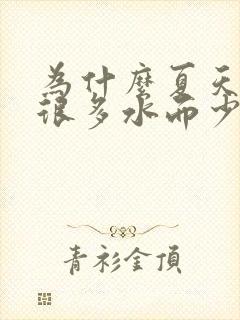 为什麼夏天
很多水而少
青衫金頂